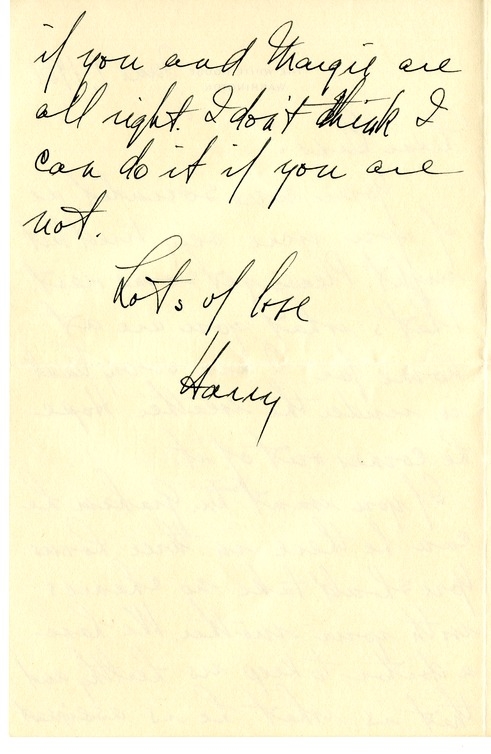 if you and Margie are
all right. I don't think I
can do it if you are
not.
Lots of love
Harry